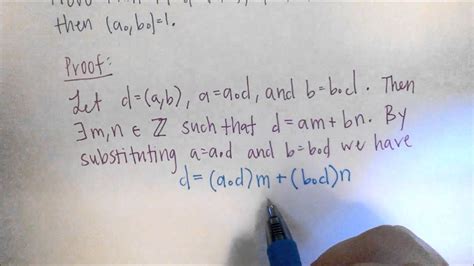 then (a₀,b₀)=1.
Proof:
Let d=(a,b), a=a₀d, and b=b₀d. Then
∃m,n∈ℤ such that d=am+bn. By
substituting a=a₀d and b=b₀d we have
d=(a₀d)m+(b₀d)n